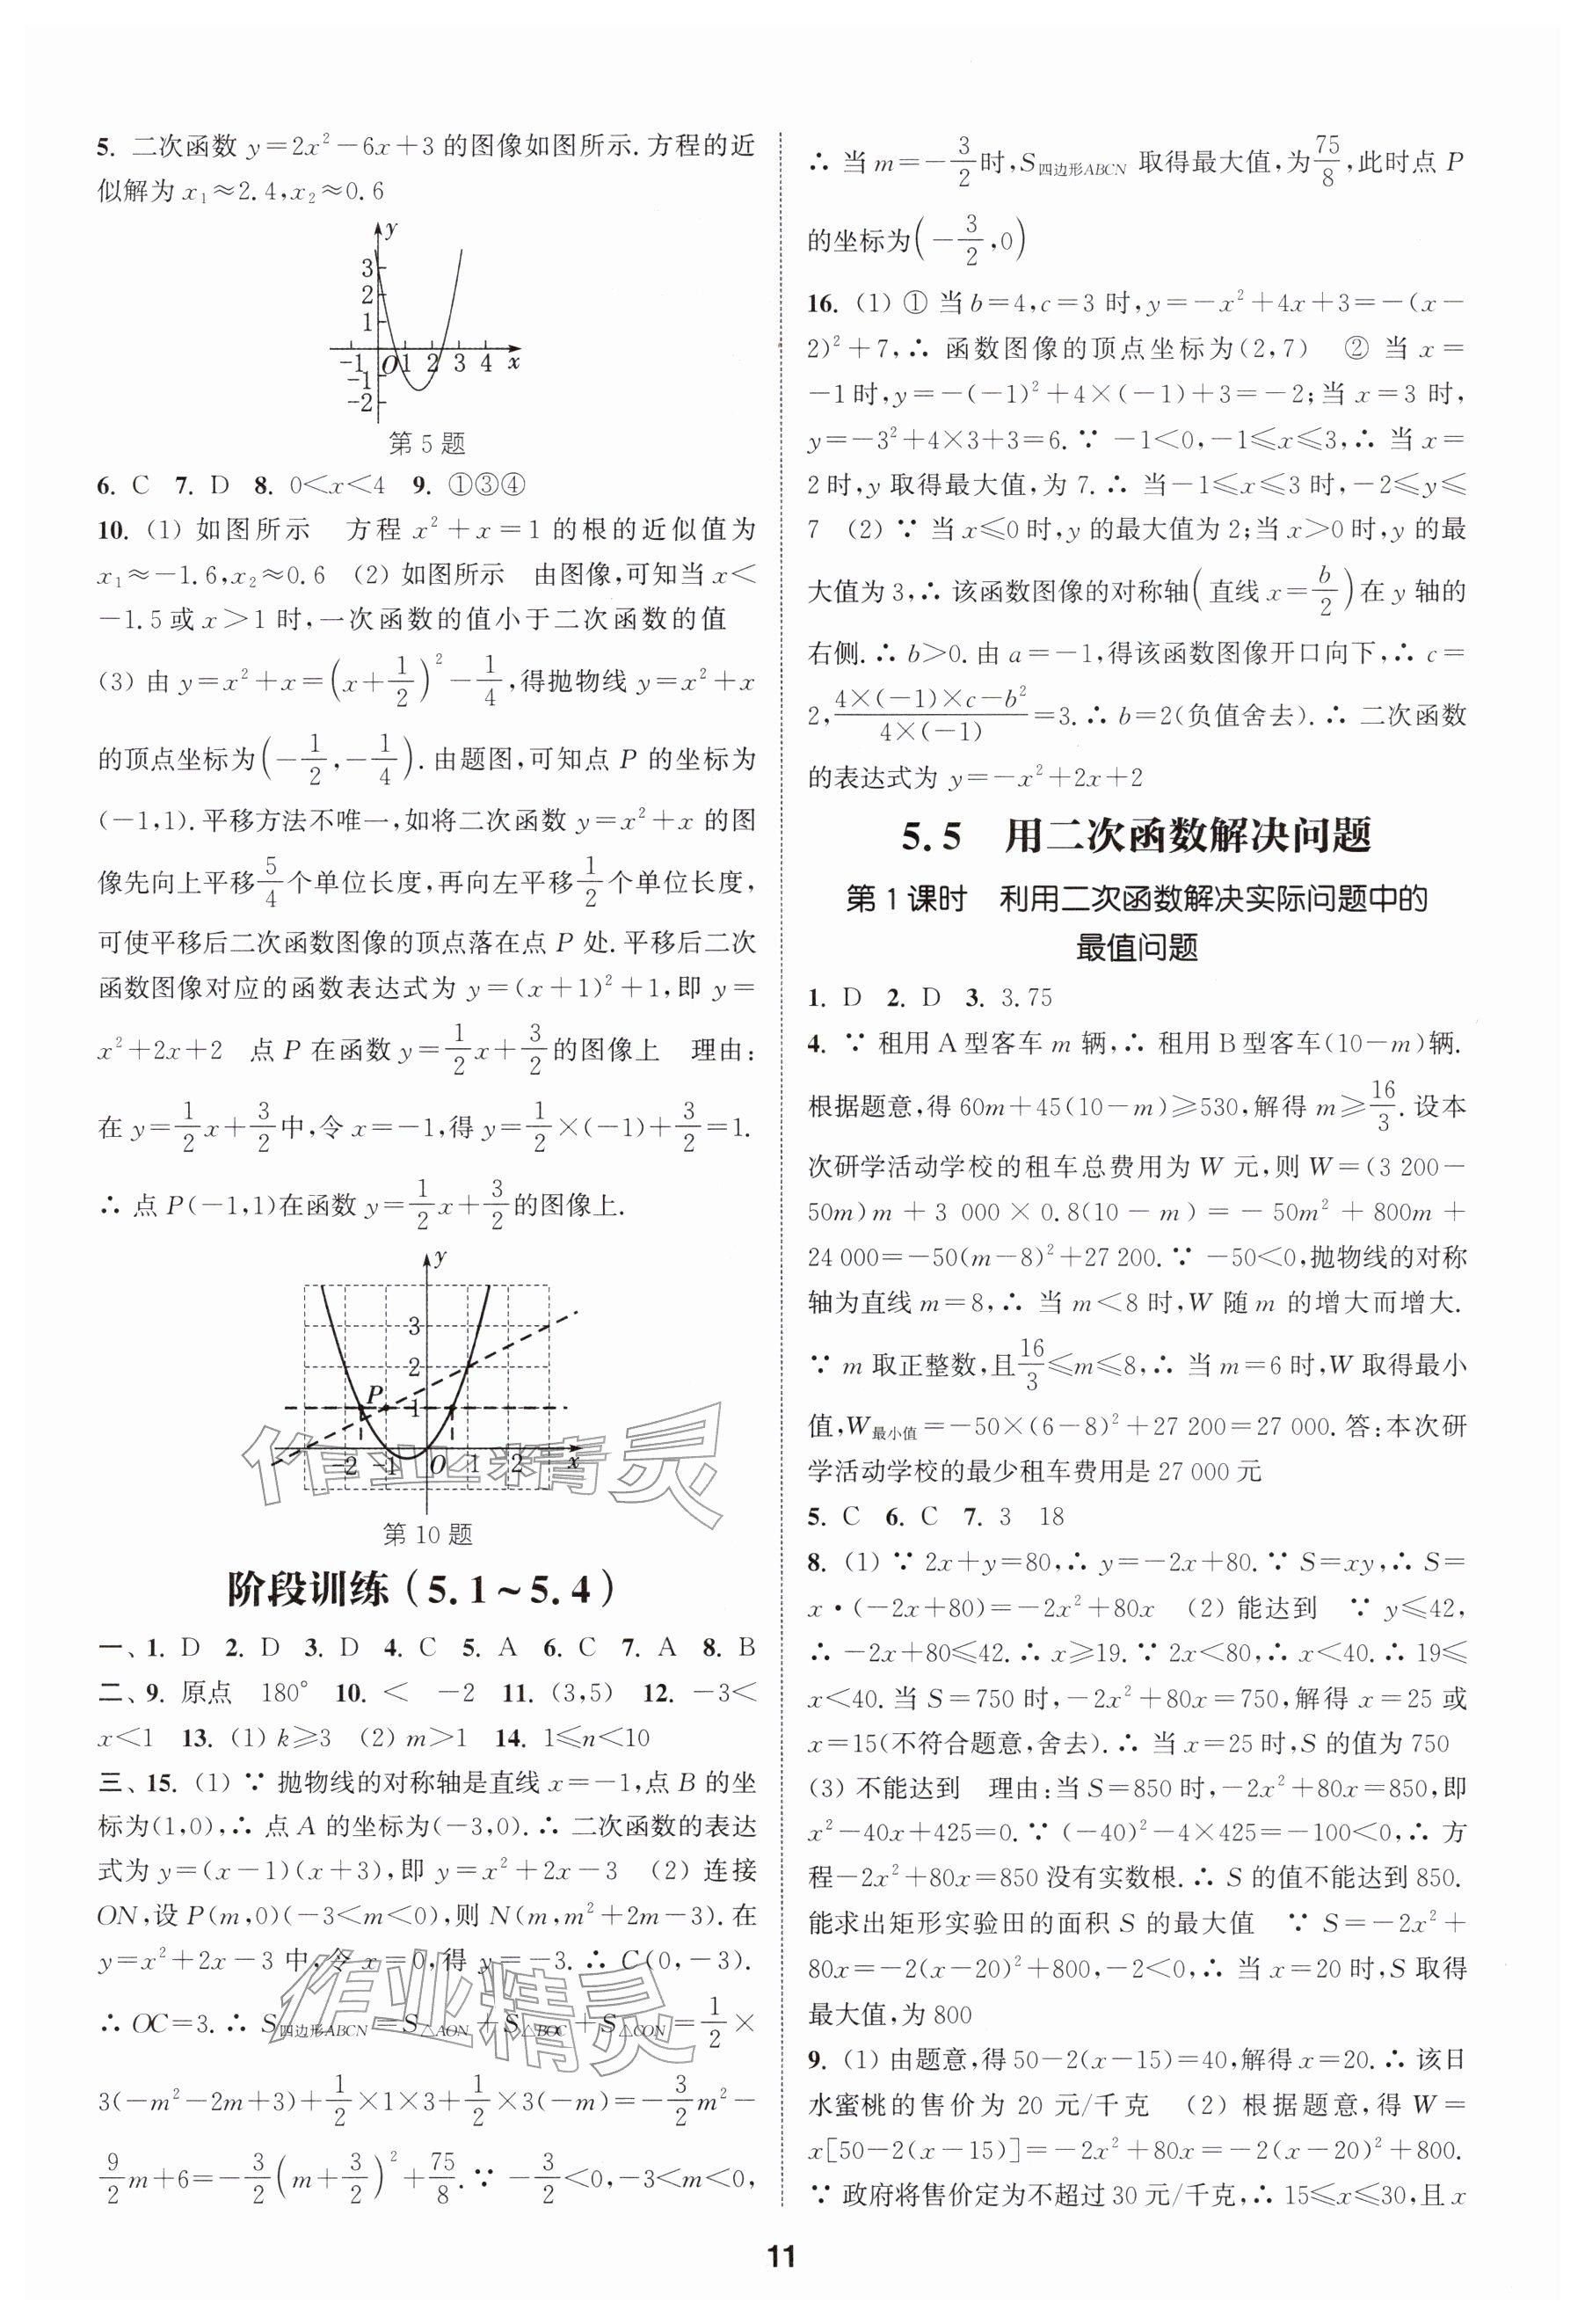 5. 二次函数 y=2x²−6x+3 的图像如图所示. 方程的近
似解为 x₁≈2.4, x₂≈0.6
y
3
2
1
−1 O 1 2 3 4 x
−1
−2
第 5 题
6. C 7. D 8. 0<x<4 9. ①③④
10. (1) 如图所示 方程 x²+x=1 的根的近似值为
x₁≈−1.6, x₂≈0.6 (2) 如图所示 由图像,可知当 x<
−1.5 或 x>1 时,一次函数的值小于二次函数的值
(3) 由 y=x²+x=(x+1/2)²−1/4,得抛物线 y=x²+x
的顶点坐标为(−1/2,−1/4). 由题图,可知点 P 的坐标为
(−1,1). 平移方法不唯一,如将二次函数 y=x²+x 的图
像先向上平移5/4个单位长度,再向左平移1/2个单位长度,
可使平移后二次函数图像的顶点落在点 P 处. 平移后二次
函数图像对应的函数表达式为 y=(x+1)²+1,即 y=
x²+2x+2 点 P 在函数 y=1/2x+3/2的图像上 理由:
在 y=1/2x+3/2中,令 x=−1,得 y=1/2×(−1)+3/2=1.
∴ 点 P(−1,1)在函数 y=1/2x+3/2的图像上.
y
3
2
P 1
−2 −1 O 1 2 x
作业精灵
第 10 题
阶段训练(5.1~5.4)
一、1. D 2. D 3. D 4. C 5. A 6. C 7. A 8. B
二、9. 原点 180° 10. < −2 11. (3,5) 12. −3<
x<1 13. (1) k≥3 (2) m>1 14. 1≤n<10
三、15. (1) ∵ 抛物线的对称轴是直线 x=−1,点 B 的坐
标为(1,0),∴ 点 A 的坐标为(−3,0). ∴ 二次函数的表达
式为 y=(x−1)(x+3),即 y=x²+2x−3 (2) 连接
ON,设 P(m,0)(−3<m<0),则 N(m,m²+2m−3). 在
y=x²+2x−3 中,令 x=0,得 y=−3. ∴ C(0,−3).
∴ OC=3. ∴ S四边形ABCN=S△AON+S△BOC+S△CON=1/2×
作业精灵
3(−m²−2m+3)+1/2×1×3+1/2×3(−m)=−3/2m²−
9/2m+6=−3/2(m+3/2)²+75/8. ∵ −3/2<0,−3<m<0,
∴ 当 m=−3/2时,S四边形ABCN 取得最大值,为75/8,此时点 P
的坐标为(−3/2,0)
16. (1) ① 当 b=4,c=3 时,y=−x²+4x+3=−(x−
2)²+7,∴ 函数图像的顶点坐标为(2,7) ② 当 x=
−1 时,y=−(−1)²+4×(−1)+3=−2;当 x=3 时,
y=−3²+4×3+3=6. ∵ −1<0,−1≤x≤3,∴ 当 x=
2 时,y 取得最大值,为 7. ∴ 当−1≤x≤3 时,−2≤y≤
7 (2) ∵ 当 x≤0 时,y 的最大值为 2;当 x>0 时,y 的最
大值为 3,∴ 该函数图像的对称轴(直线 x=b/2)在 y 轴的
右侧. ∴ b>0. 由 a=−1,得该函数图像开口向下,∴ c=
2,(4×(−1)×c−b²)/(4×(−1))=3. ∴ b=2(负值舍去). ∴ 二次函数
的表达式为 y=−x²+2x+2
5.5 用二次函数解决问题
第 1 课时 利用二次函数解决实际问题中的
最值问题
1. D 2. D 3. 3.75
4. ∵ 租用 A 型客车 m 辆,∴ 租用 B 型客车(10−m)辆.
根据题意,得 60m+45(10−m)≥530,解得 m≥16/3. 设本
次研学活动学校的租车总费用为 W 元,则 W=(3 200−
50m)m+3 000×0.8(10−m)=−50m²+800m+
24 000=−50(m−8)²+27 200. ∵ −50<0,抛物线的对称
轴为直线 m=8,∴ 当 m<8 时,W 随 m 的增大而增大.
∵ m 取正整数,且16/3≤m≤8,∴ 当 m=6 时,W 取得最小
值,W最小值=−50×(6−8)²+27 200=27 000. 答:本次研
学活动学校的最少租车费用是 27 000 元
5. C 6. C 7. 3 18
8. (1) ∵ 2x+y=80,∴ y=−2x+80. ∵ S=xy,∴ S=
x·(−2x+80)=−2x²+80x (2) 能达到 ∵ y≤42,
∴ −2x+80≤42. ∴ x≥19. ∵ 2x<80,∴ x<40. ∴ 19≤
x<40. 当 S=750 时,−2x²+80x=750,解得 x=25 或
x=15(不符合题意,舍去). ∴ 当 x=25 时,S 的值为 750
(3) 不能达到 理由:当 S=850 时,−2x²+80x=850,即
x²−40x+425=0. ∵ (−40)²−4×425=−100<0,∴ 方
程−2x²+80x=850 没有实数根. ∴ S 的值不能达到 850.
能求出矩形实验田的面积 S 的最大值 ∵ S=−2x²+
80x=−2(x−20)²+800,−2<0,∴ 当 x=20 时,S 取得
最大值,为 800
9. (1) 由题意,得 50−2(x−15)=40,解得 x=20. ∴ 该日
水蜜桃的售价为 20 元/千克 (2) 根据题意,得 W=
x[50−2(x−15)]=−2x²+80x=−2(x−20)²+800.
∵ 政府将售价定为不超过 30 元/千克,∴ 15≤x≤30,且 x
11